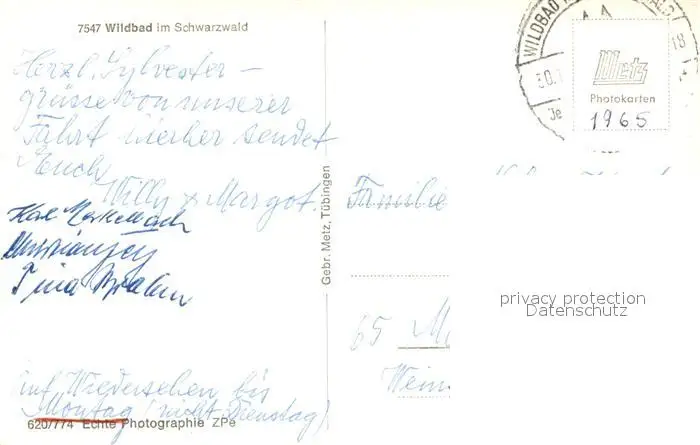 7547 Wildbad im Schwarzwald
Herzl. Sylvester –
grüsse von unserer
Fahrt hierher sendet
Euch
Willy & Margot.
Tina
Auf Wiedersehen bis
Montag (nicht Dienstag)
620/774 Echte Photographie ZPe
Gebr. Metz, Tübingen
WILDBAD
30.
18
Metz
Photokarten
1965
Familie
65
privacy protection
Datenschutz